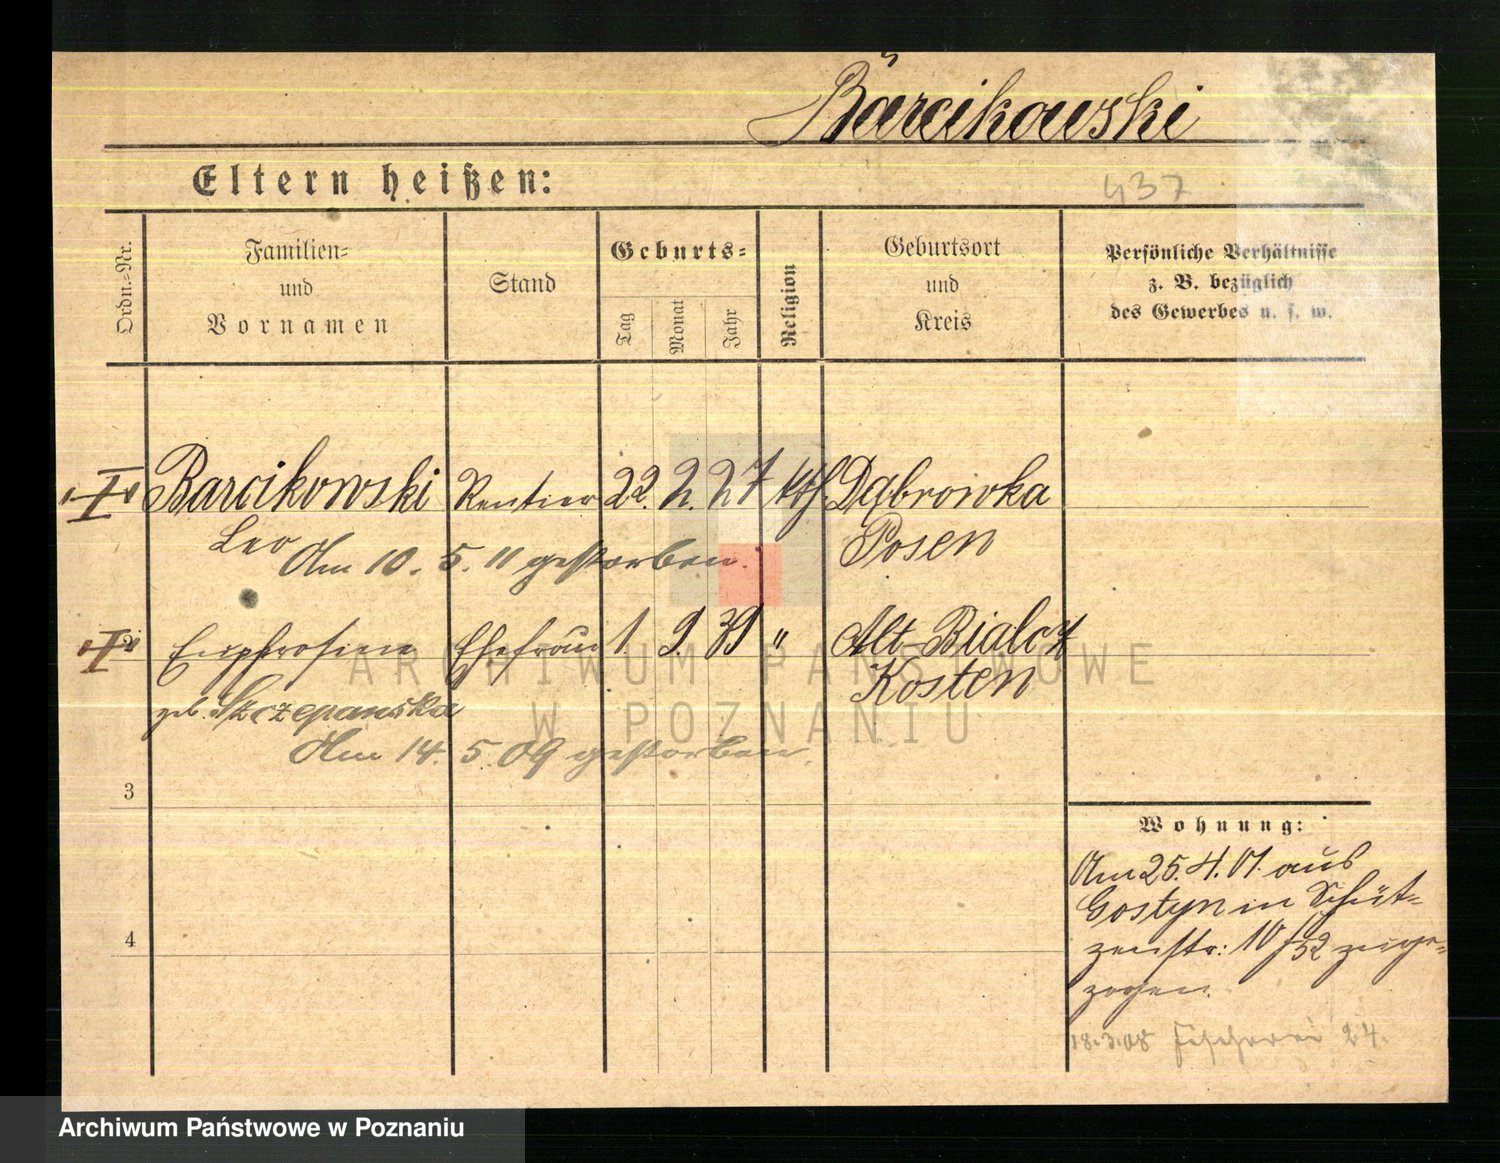 Barcikowski
Eltern heißen:
437
Ordn.-Nr.
Familien- und Vornamen
Stand
Geburts-
Tag
Monat
Jahr
Religion
Geburtsort und Kreis
Persönliche Verhältnisse
z. B. bezüglich
des Gewerbes u. s. w.
Barcikowski Rentier 22. 2. 27 kth Dąbrowka
Leo Posen
Am 10. 5. 11 gestorben.
Euphrosine Ehefrau 1. 9. 39 " Alt Bialcz
geb. Szczepańska Kosten
Am 14. 5. 09 gestorben.
3
4
Wohnung:
Am 25. 4. 01. aus
Gostyn in Schüt-
zenstr: 10/52 zuge-
zogen.
18.3.08 Fischerei 24.
ARCHIWUM PAŃSTWOWE
W POZNANIU
Archiwum Państwowe w Poznaniu